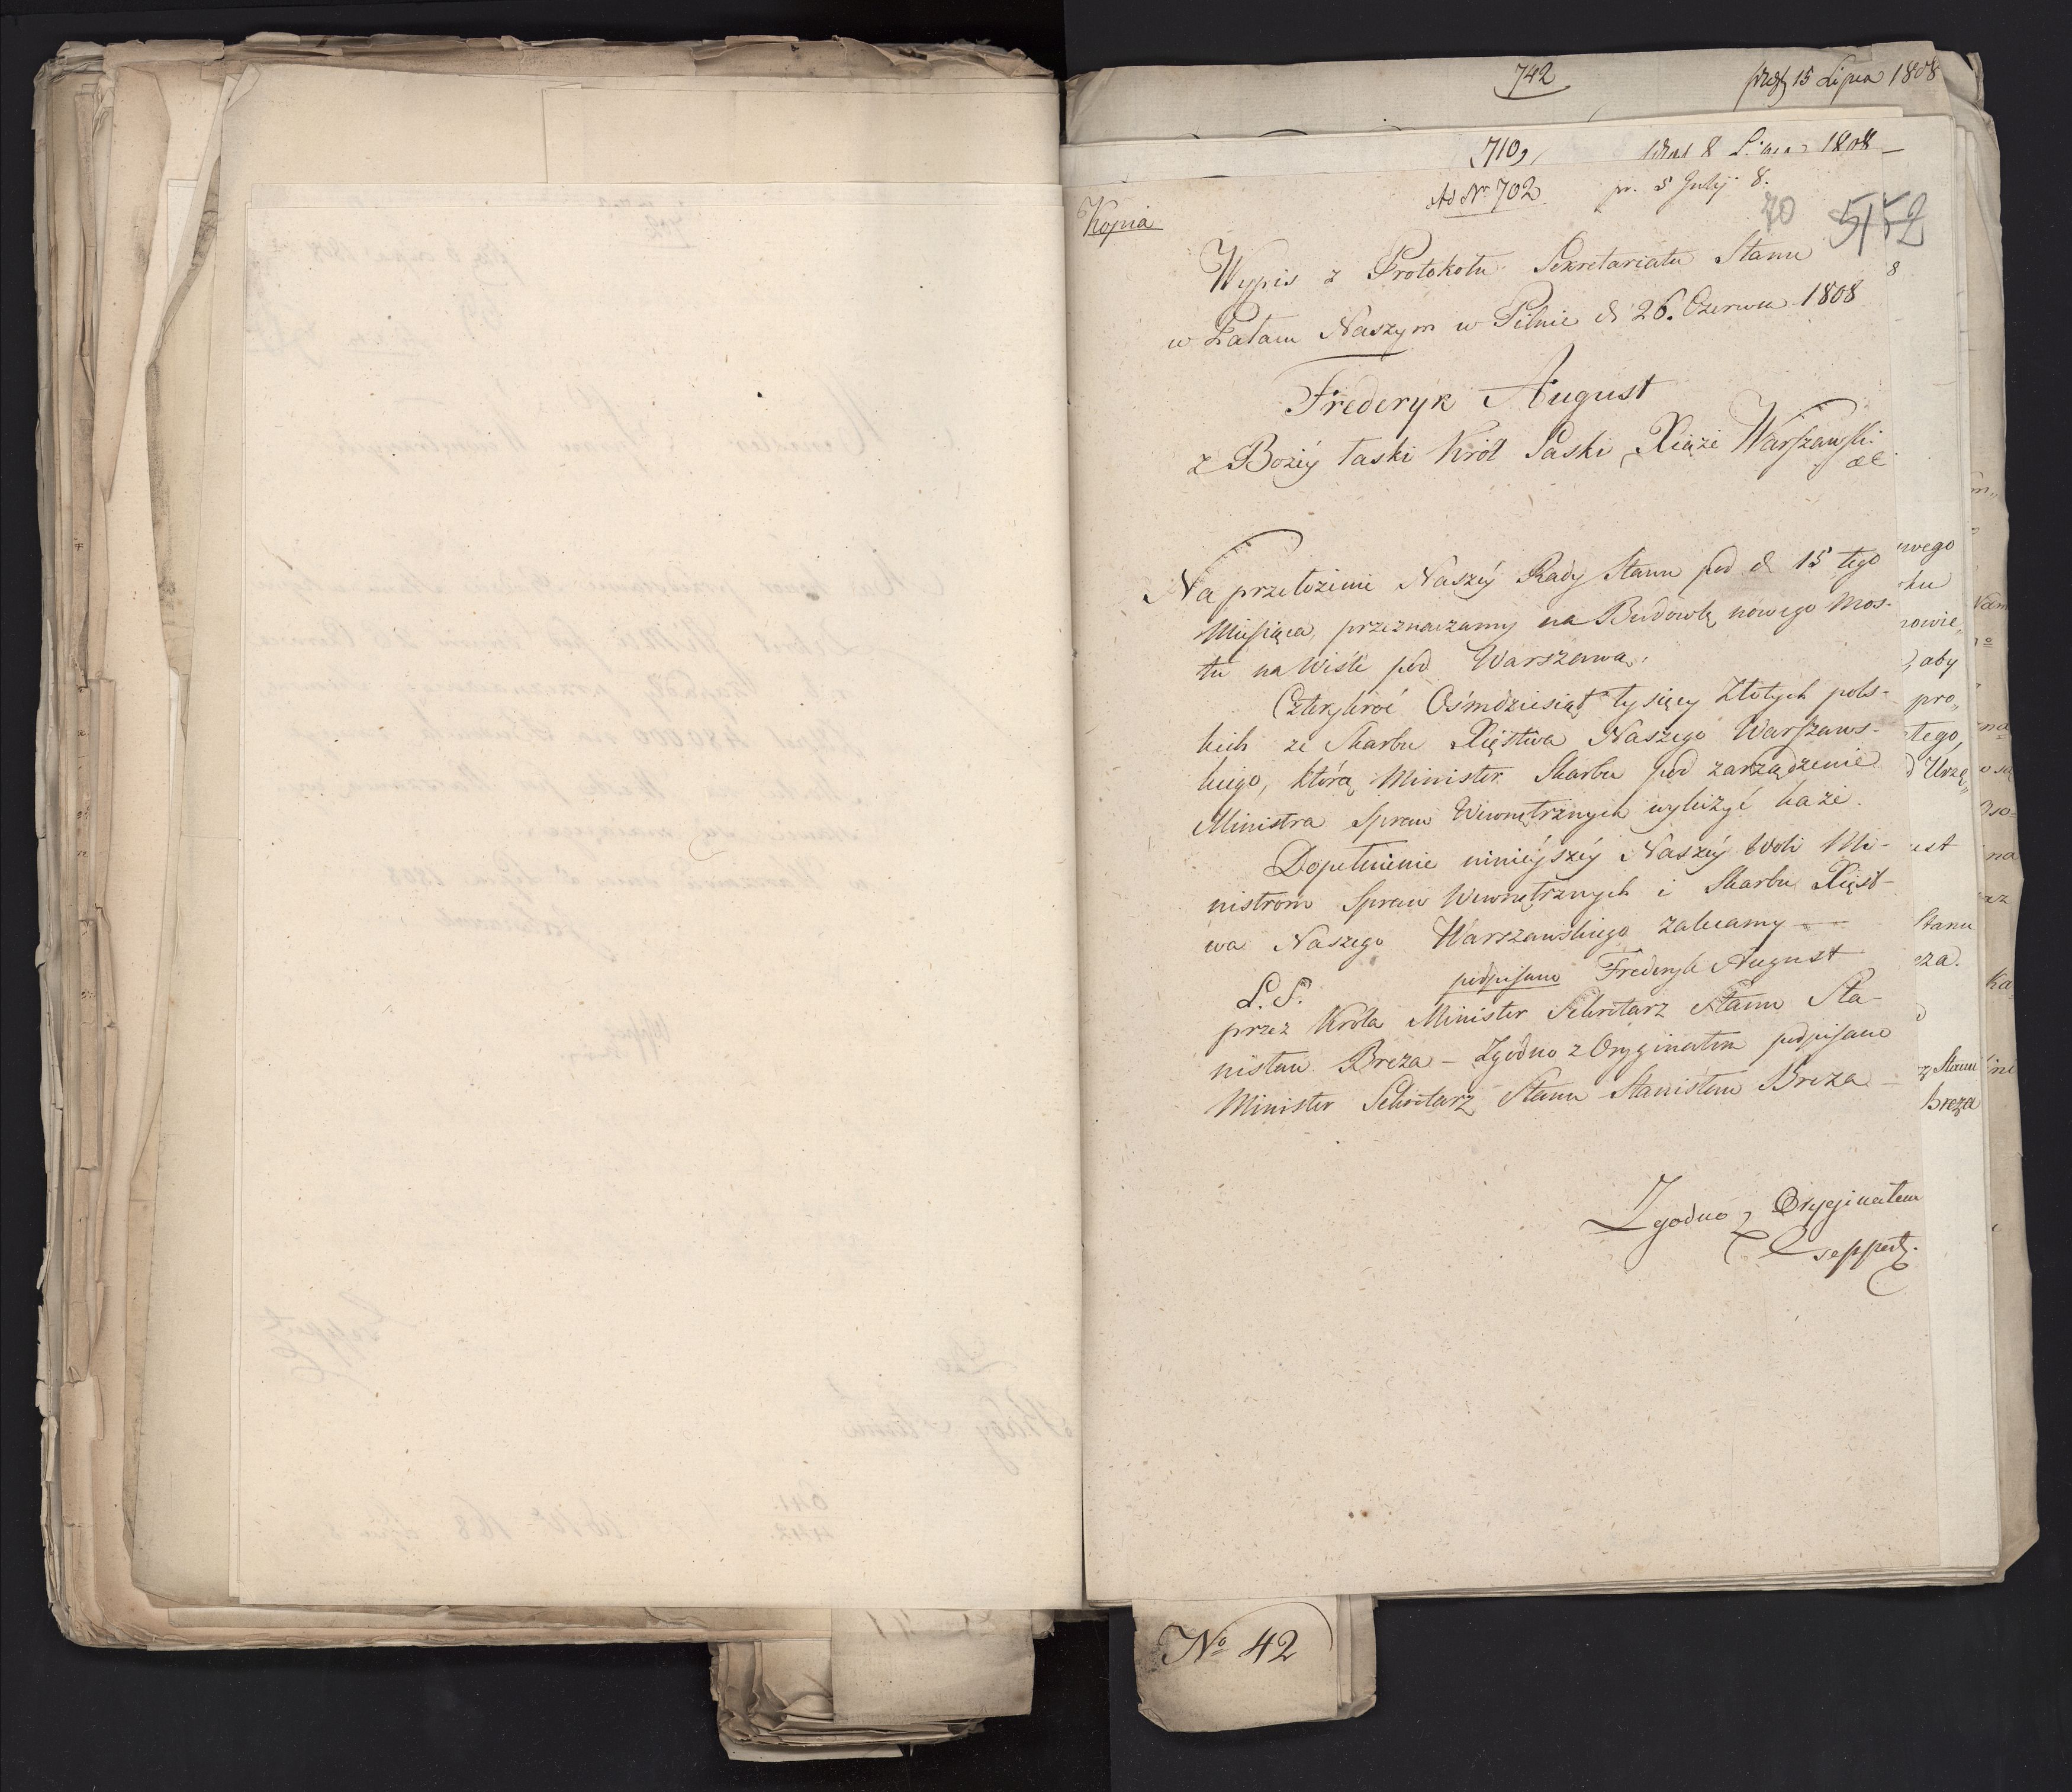 742
15 Lipca 1808
710
8 1808
Ad Nr 702. pr. 5 July 8.
70 5152
Kopia
Wypis z Protokołu Sekretariatu Stanu
w Pałacu Naszym w Pilnie d. 26. Czerwca 1808
Frederyk August
z Bożey łaski Król Saski, Xiąże Warszawski
&c
Na przełożenie Naszéy Rady Stanu pod d 15 tego
Miesiąca, przeznaczamy na Budowlę nowego Mos-
tu na Wiśle pod Warszawą,
Czterykroć Ośmdziesiąt tysięcy Złotych pols-
kich ze Skarbu Xięstwa Naszego Warszaws-
kiego, którą Minister Skarbu pod zarządzenie
Ministra Spraw Wewnętrznych wyliczyć każe.
Dopełnienie ninieyszéy Naszéy Woli Mi-
nistrom Spraw Wewnętrznych i Skarbu Xięst-
wa Naszego Warszawskiego zalecamy —
L. S. podpisano Frederyk August
przez Króla Minister Sekretarz Stanu Sta-
nisław Breza - Zgodno z Oryginałem podpisano
Minister Sekretarz Stanu Stanisław Breza -
Zgodno z Oryginałem
8
wego
aby
pro„
tego
Stanu
eza.
Stanu
Breza
No 42